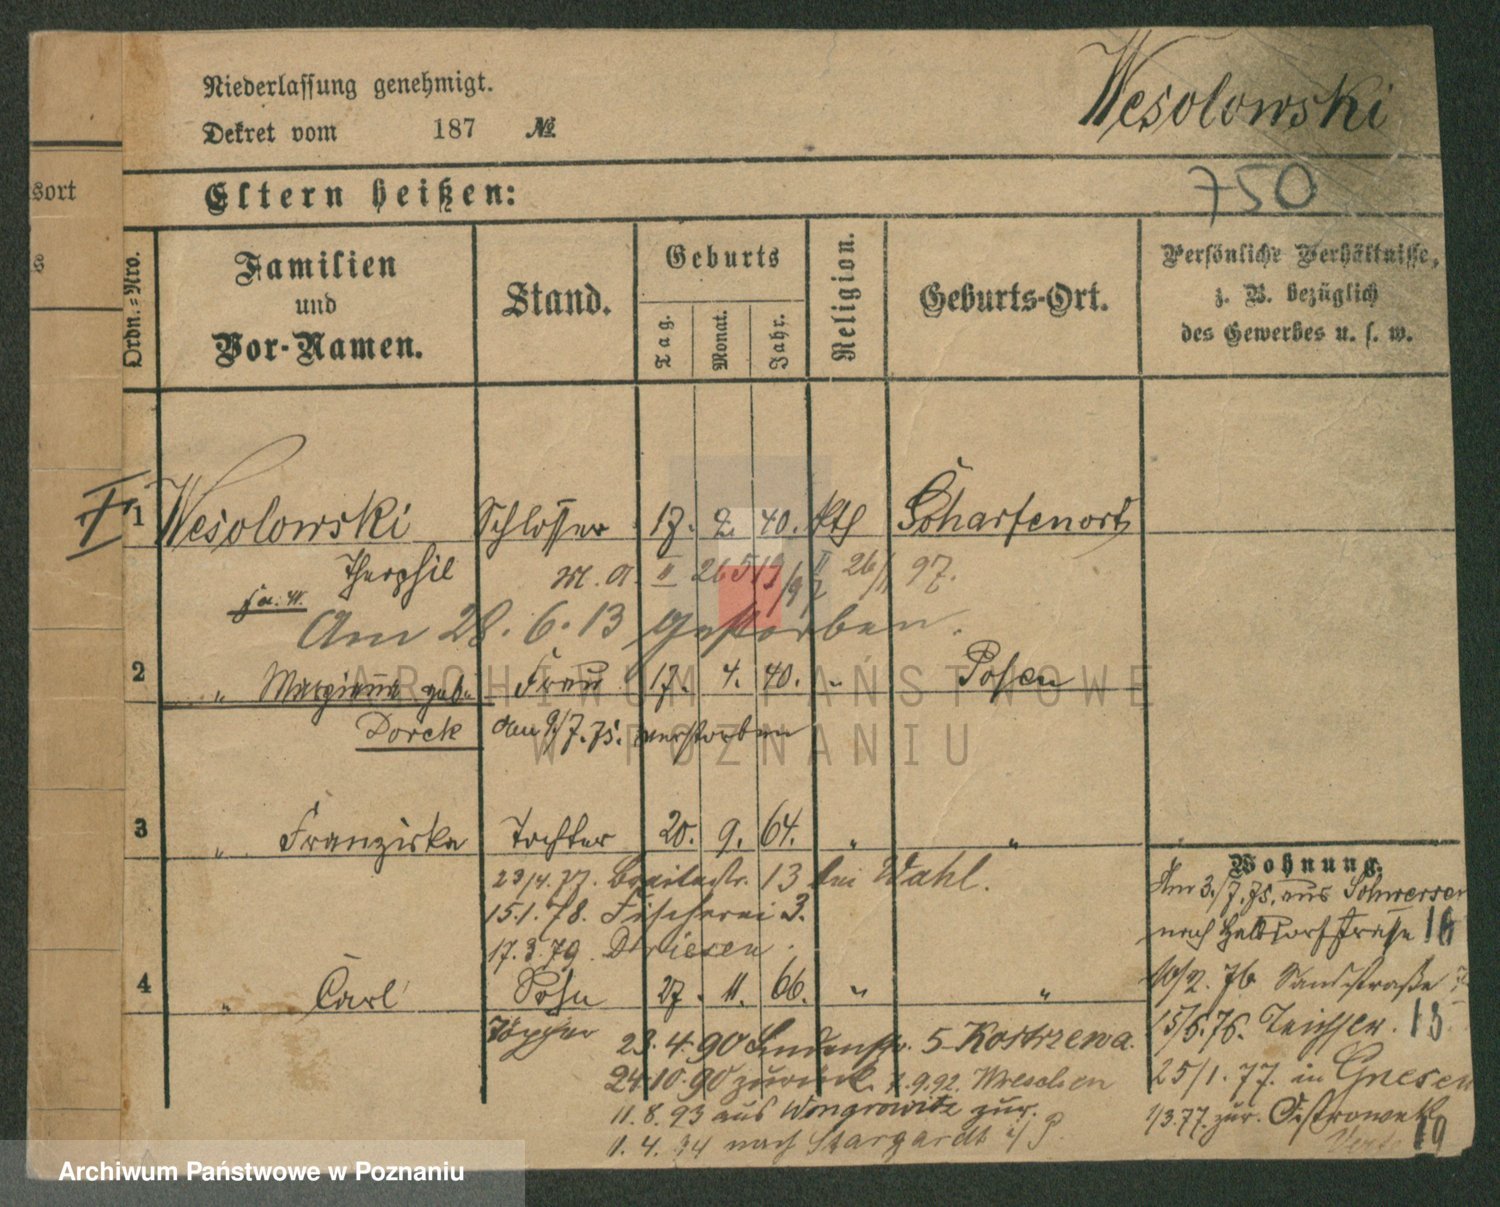 Niederlassung genehmigt.
Wesolowski
Dekret vom 187 №
750
Eltern heißen:
sort
s
Ordn.=Nro.
Familien und Vor-Namen.
Stand.
Geburts
Tag.
Monat.
Jahr.
Religion.
Geburts-Ort.
Persönliche Verhältnisse,
z. B. bezüglich
des Gewerbes u. s. w.
1 Wesolowski Schlosser 17. 2. 40. kth Scharfenort
Theophil
26/11 97.
Am 28. 6. 13 gestorben.
2 " Marianna geb. Frau 17. 4. 40. " Posen
Dorck den 9/7. 75. verstorben
3 " Franziska Tochter 20. 9. 64. " "
23/4. 77. Breitestr. 13 bei Wahl.
15.1. 78. Fischerei 3.
17.3.79. Driesen.
4 " Carl Sohn 27. 11. 66. " "
Töpfer
23. 4. 90 Lindenstr. 5 Kostrzewa.
24.10.90 zurück. 2.9.92. Wreschen
11. 8. 93 aus Wongrowitz zur.
1. 4. 94 nach Stargardt i/P.
Wohnung.
Am 3./7. 75. aus Schwersen
nach Halbdorfstraße 16
10/2. 76 Sandstraße
15/6. 76. 13
25/1. 77. in Gnesen
1/3.77. zur. Ostrowek
19
ARCHIWUM PAŃSTWOWE
W POZNANIU
Archiwum Państwowe w Poznaniu